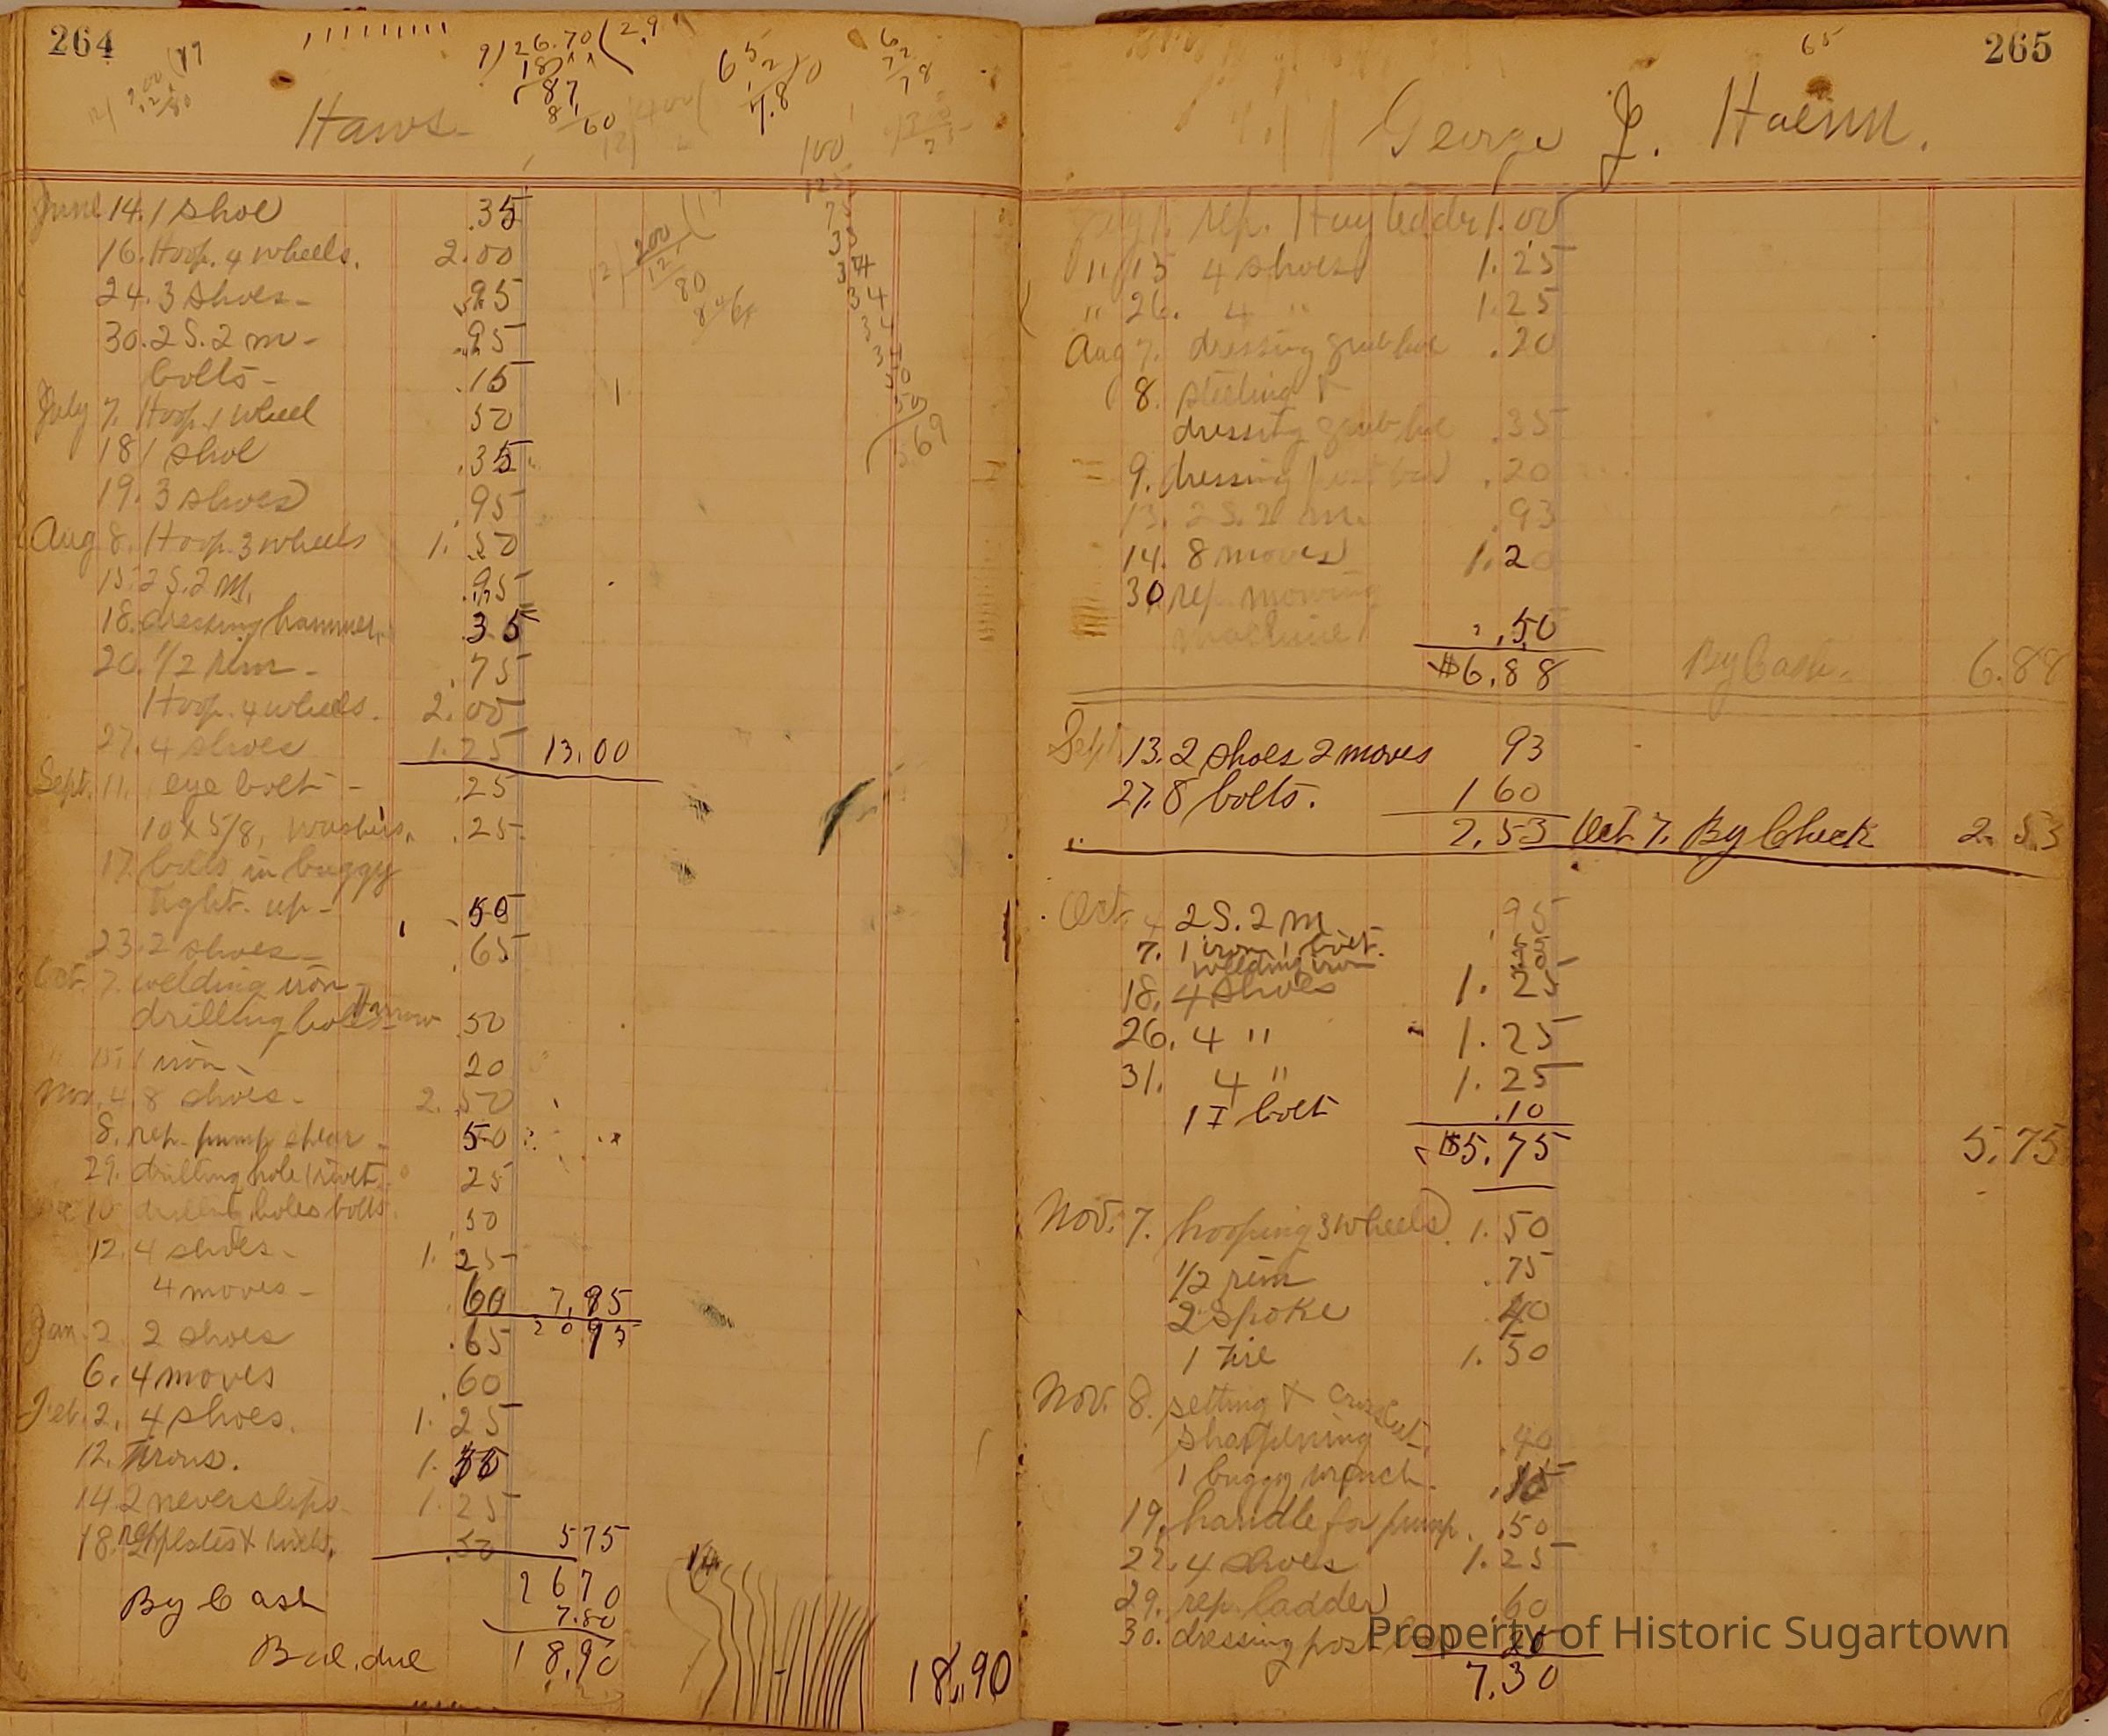 264
9)26.70(2.9
18
87
81
60
Haws
June 14. 1 shoe .35
16. Hoop. 4 wheels. 2.00
24. 3 shoes - .95
30. 2 S. 2 m - .95
bolts - .15
July 7. Hoop. 1 wheel 50
18 1 shoe .35
19. 3 shoes .95
Aug 8. Hoop. 3 wheels 1.50
15. 2 S. 2 M. .95
18. dressing hammer. .35
20. 1/2 rim - .75
Hoop. 4 wheels. 2.00
27. 4 shoes 1.25 13.00
Sept. 11. 1 eye bolt - .25
10 x 5/8, washers. .25
17. bolts in buggy
tight. up - .50
23. 2 shoes - .65
Oct. 7. welding iron -
drilling holes 50
15. 1 iron - 20
Nov. 4 8 shoes - 2.50
8. rep. pump spear - 50
29. drilling hole 1 rivet. 25
10 holes bolts .50
12. 4 shoes - 1.25
4 moves - .60 7.95
2095
Jan. 2 2 shoes .65
6. 4 moves .60
Feb. 2. 4 shoes. 1.25
12. irons. 1.
14. 2 neverslips - 1.25
18. plates & rivets. .50 575
2670
By Cash 7.80
Bal. due 18.90
18.90
100
125
75
35
34
34
34
50
50
69
65
265
George J. Haenn.
July 1. rep. Hay ladder 1.00
" 15 4 shoes 1.25
" 26. 4 " 1.25
Aug 7. dressing grub hoe .20
8. steeling &
dressing grub hoe .35
9. dressing post bar .20
13. 2 S. 2 m. .93
14. 8 moves 1.20
30 rep. mowing
machine .50
$6.88 By Cash. 6.88
Sept. 13. 2 shoes 2 moves 93
27. 8 bolts. 1 60
" 2.53 Oct 7. By Check 2.53
Oct. 4 2 S. 2 m .95
7. 1 iron 1 bolt.
welding iron
18. 4 shoes 1.25
26. 4 " 1.25
31. 4 " 1.25
1 I bolt .10
$5.75 5.75
Nov. 7. hooping 3 wheels. 1.50
1/2 rim .75
2 spoke .40
1 tire 1.50
Nov. 8. setting & crosscut
sharpening .40
1 buggy wrench. .15
19. handle for pump. .50
22. 4 shoes 1.25
29. rep. ladder .60
30. dressing post .20
7.30
Property of Historic Sugartown